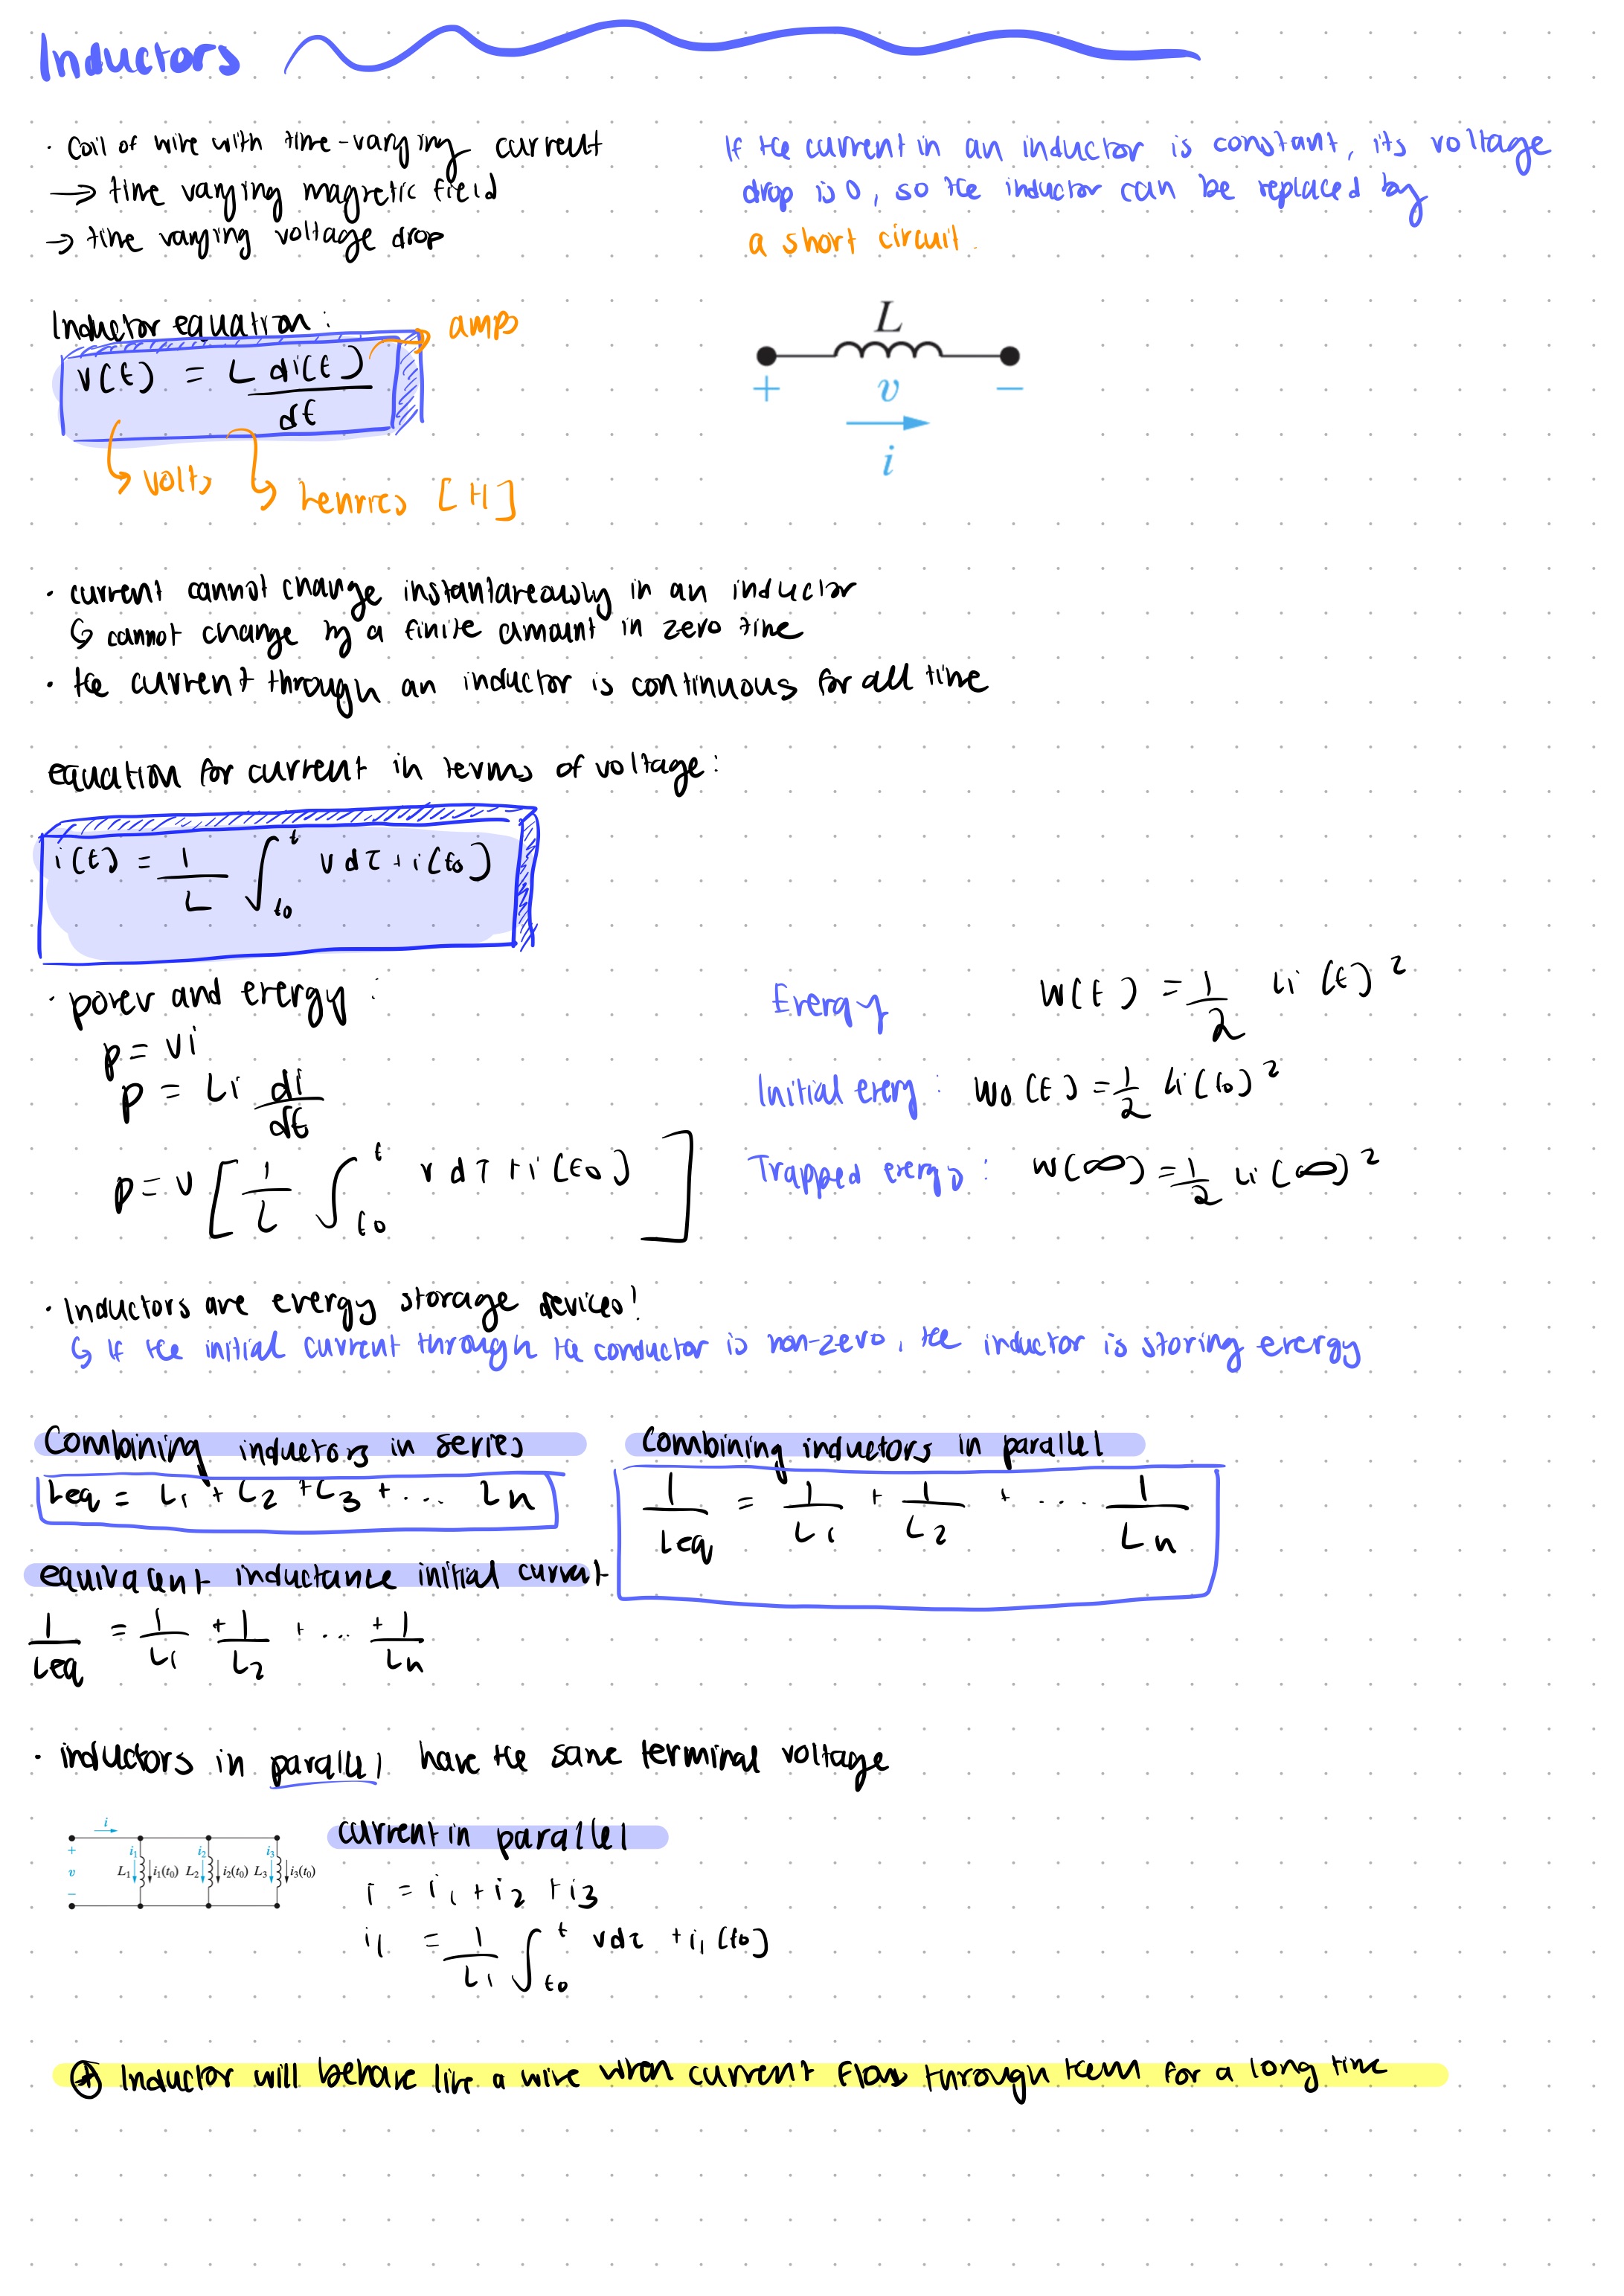 Inductors
· Coil of wire with time-varying current
→ time varying magnetic field
→ time varying voltage drop
If the current in an inductor is constant, its voltage
drop is 0, so the inductor can be replaced by
a short circuit.
Inductor equation:
v(t) = L di(t)/dt
amps
volts
henries [H]
L
+ v −
i
· current cannot change instantaneously in an inductor
↳ cannot change by a finite amount in zero time
· the current through an inductor is continuous for all time
equation for current in terms of voltage:
i(t) = 1/L ∫_t0^t v dτ + i(t0)
· power and energy:
p = vi
p = Li di/dt
p = v [ 1/L ∫_t0^t v dτ + i(t0) ]
Energy w(t) = 1/2 Li(t)²
Initial energy: w0(t) = 1/2 Li(t0)²
Trapped energy: w(∞) = 1/2 Li(∞)²
· Inductors are energy storage devices!
↳ If the initial current through the conductor is non-zero, the inductor is storing energy
Combining inductors in series
Leq = L1 + L2 + L3 + ... Ln
Combining inductors in parallel
1/Leq = 1/L1 + 1/L2 + ... 1/Ln
equivalent inductance initial current
1/Leq = 1/L1 + 1/L2 + ... + 1/Ln
· inductors in parallel have the same terminal voltage
i
+ v −
i1 L1 i1(t0) i2 L2 i2(t0) i3 L3 i3(t0)
current in parallel
i = i1 + i2 + i3
i1 = 1/L1 ∫_t0^t v dτ + i1(t0)
Inductor will behave like a wire when current flow through them for a long time